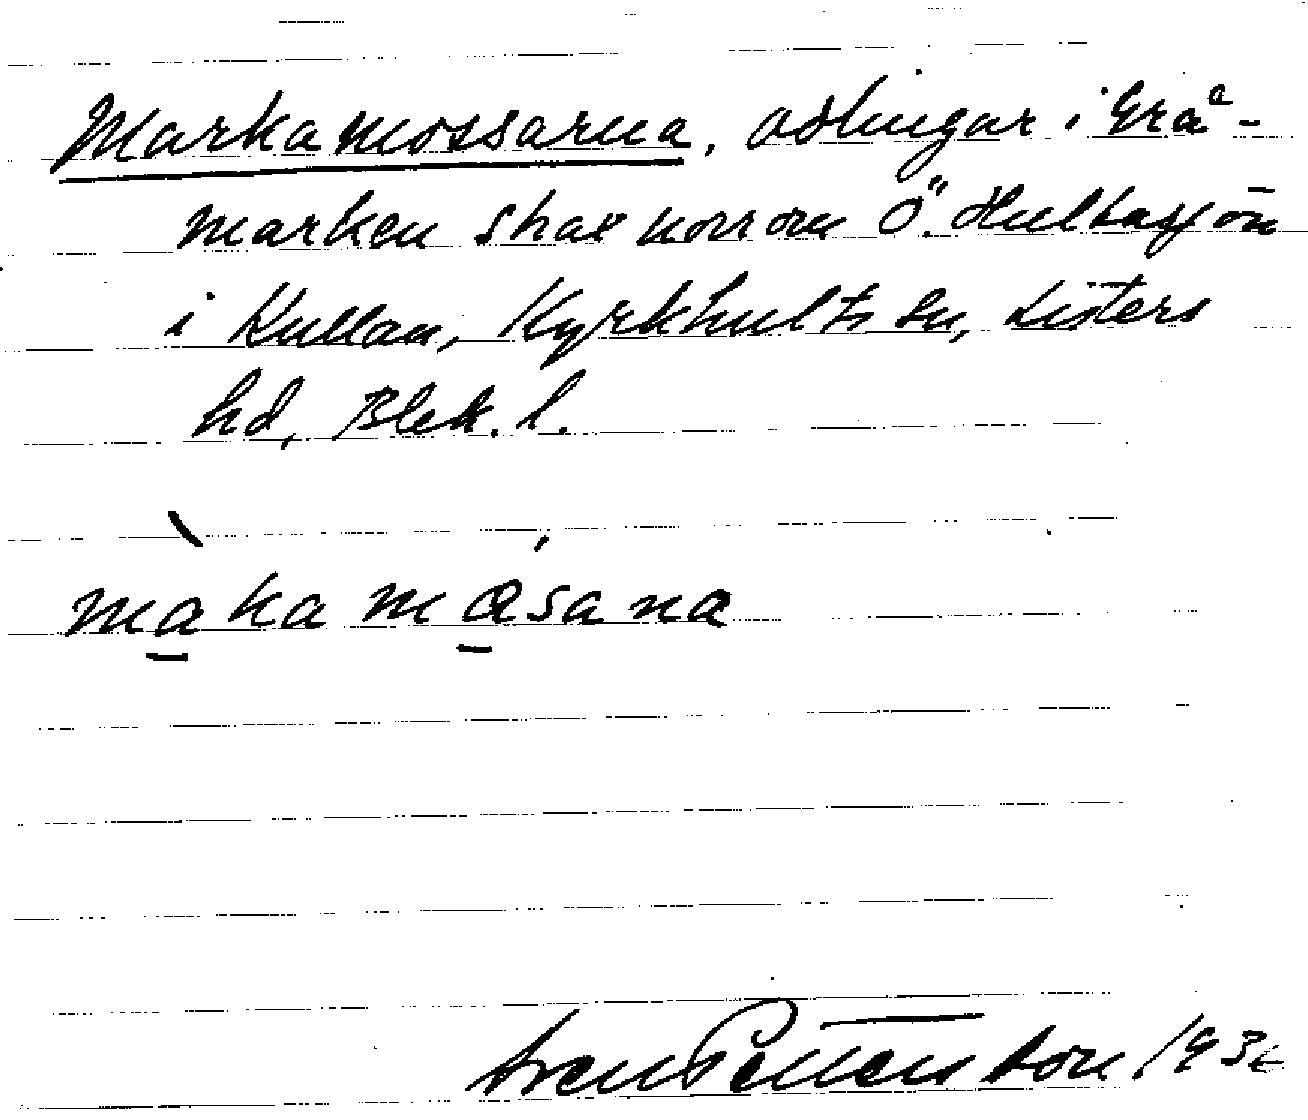 Markamossarna, odlingar i Grå-
marken strax norr om Ö. Hultasjön
i Kullan, Kyrkhults sn, Listers
hd, Blek. l.
màkamɑ́sana
Sven Petterson 193